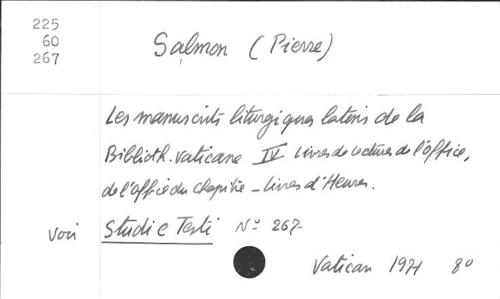 225
60
267
Salmon (Pierre)
Les manuscrits liturgiques latins de la
Biblioth. vaticane IV Livres de lectures de l'office,
de l'office du chapitre - Livres d'Heures.
voir Studi e Testi N° 267
Vatican 1971 8°